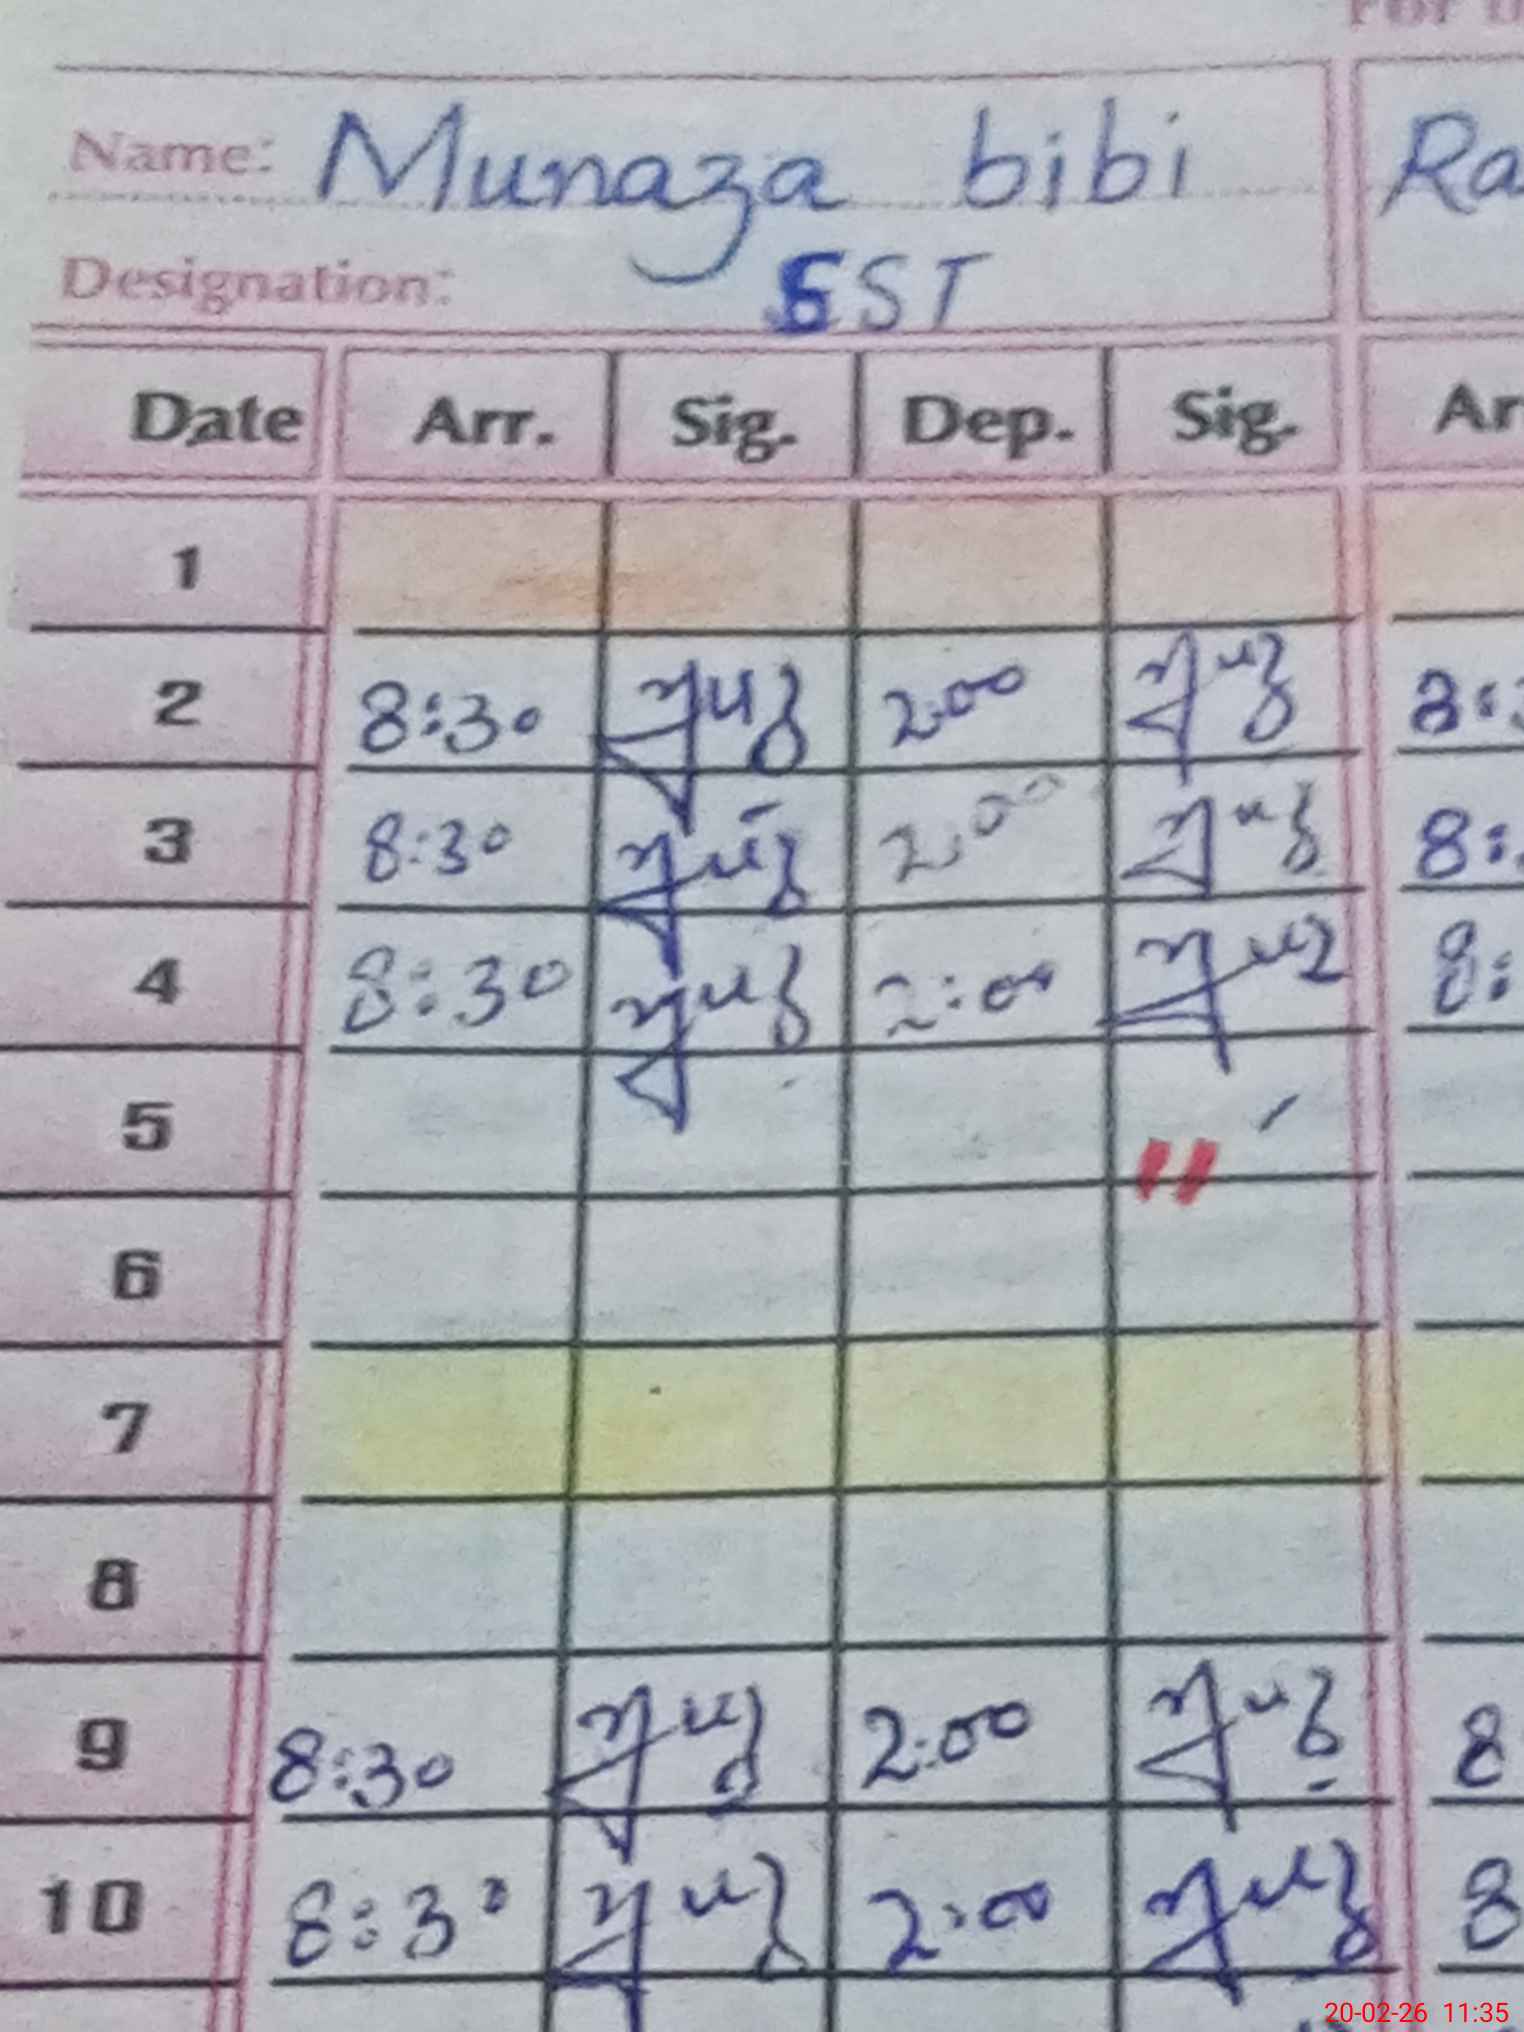 For
Name: Munaza bibi Ra
Designation: SST
Date Arr. Sig. Dep. Sig. Ar
1
2 8:30 2:00 8:3
3 8:30 2:00 8:
4 8:30 2:00 8:
5 "
6
7
8
9 8:30 2:00 8
10 8:30 2:00 8
20-02-26 11:35